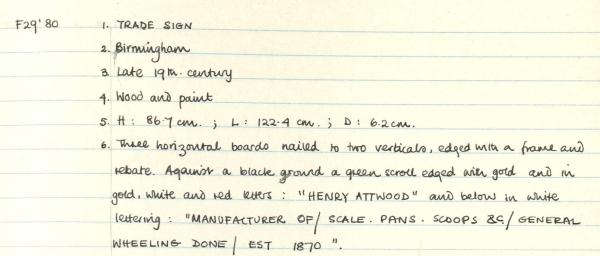 F29'80 1. TRADE SIGN
2. Birmingham
3. Late 19th. century
4. Wood and paint
5. H : 86.7 cm. ; L : 122.4 cm. ; D : 6.2 cm.
6. Three horizontal boards nailed to two verticals, edged with a frame and
rebate. Against a black ground a green scroll edged with gold and in
gold, white and red letters : "HENRY ATTWOOD" and below in white
lettering : "MANUFACTURER OF/ SCALE . PANS . SCOOPS &C/ GENERAL
WHEELING DONE/ EST 1870 ".